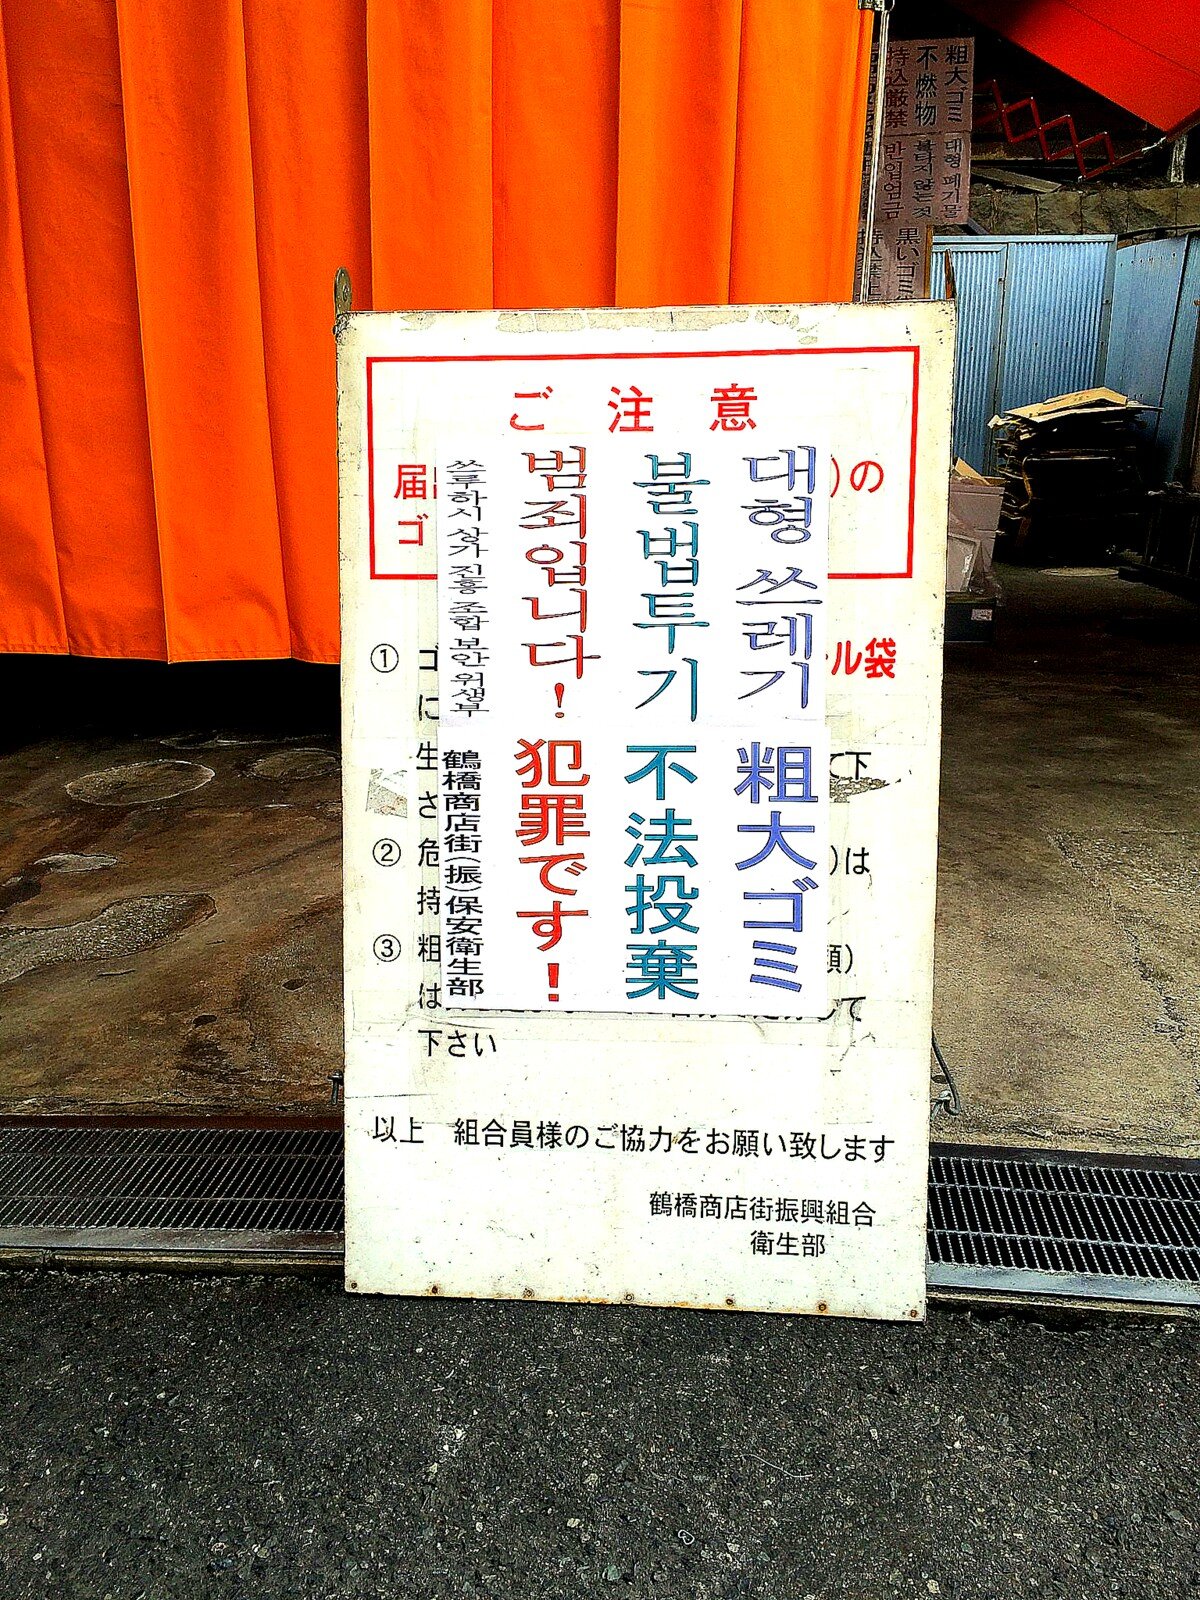 ご注意
届
の
ゴ
대형 쓰레기
불법투기
범죄입니다!
쓰루하시 상가 진흥 조합 보안 위생부
粗大ゴミ
不法投棄
犯罪です!
鶴橋商店街(振)保安衛生部
① ゴ
ル袋
に
生
て下
さ
② 危
)は
持
③ 粗
願)
は
して
下さい
以上 組合員様のご協力をお願い致します
鶴橋商店街振興組合
衛生部
粗大ゴミ
不燃物
持込厳禁
대형 폐기물
불타지 않는 것
반입엄금
黒いゴミ